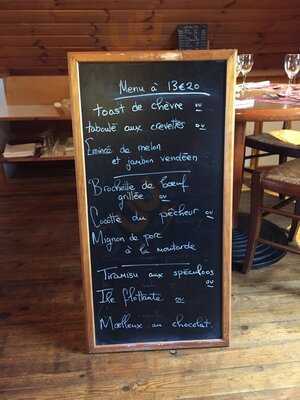 Menu à 13€20
Toast de chèvre ou
taboulé aux crevettes ou
Emincé de melon
et jambon vendéen
Brochette de bœuf
grillée ou
Cocotte du pêcheur ou
Mignon de porc
à la moutarde
Tiramisu aux spéculoos
ou
Ile flottante ou
Moelleux au chocolat